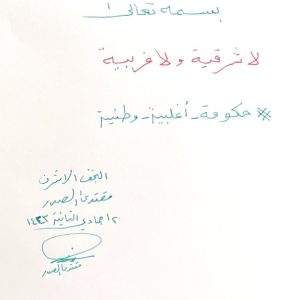 بسمه تعالى
لا شرقية ولا غربية
* حكومة - أغلبية - وطنية
النجف الاشرف
مقتدى الصدر
٢ جمادي الثانية ١٤٤٣
مقتدى الصدر